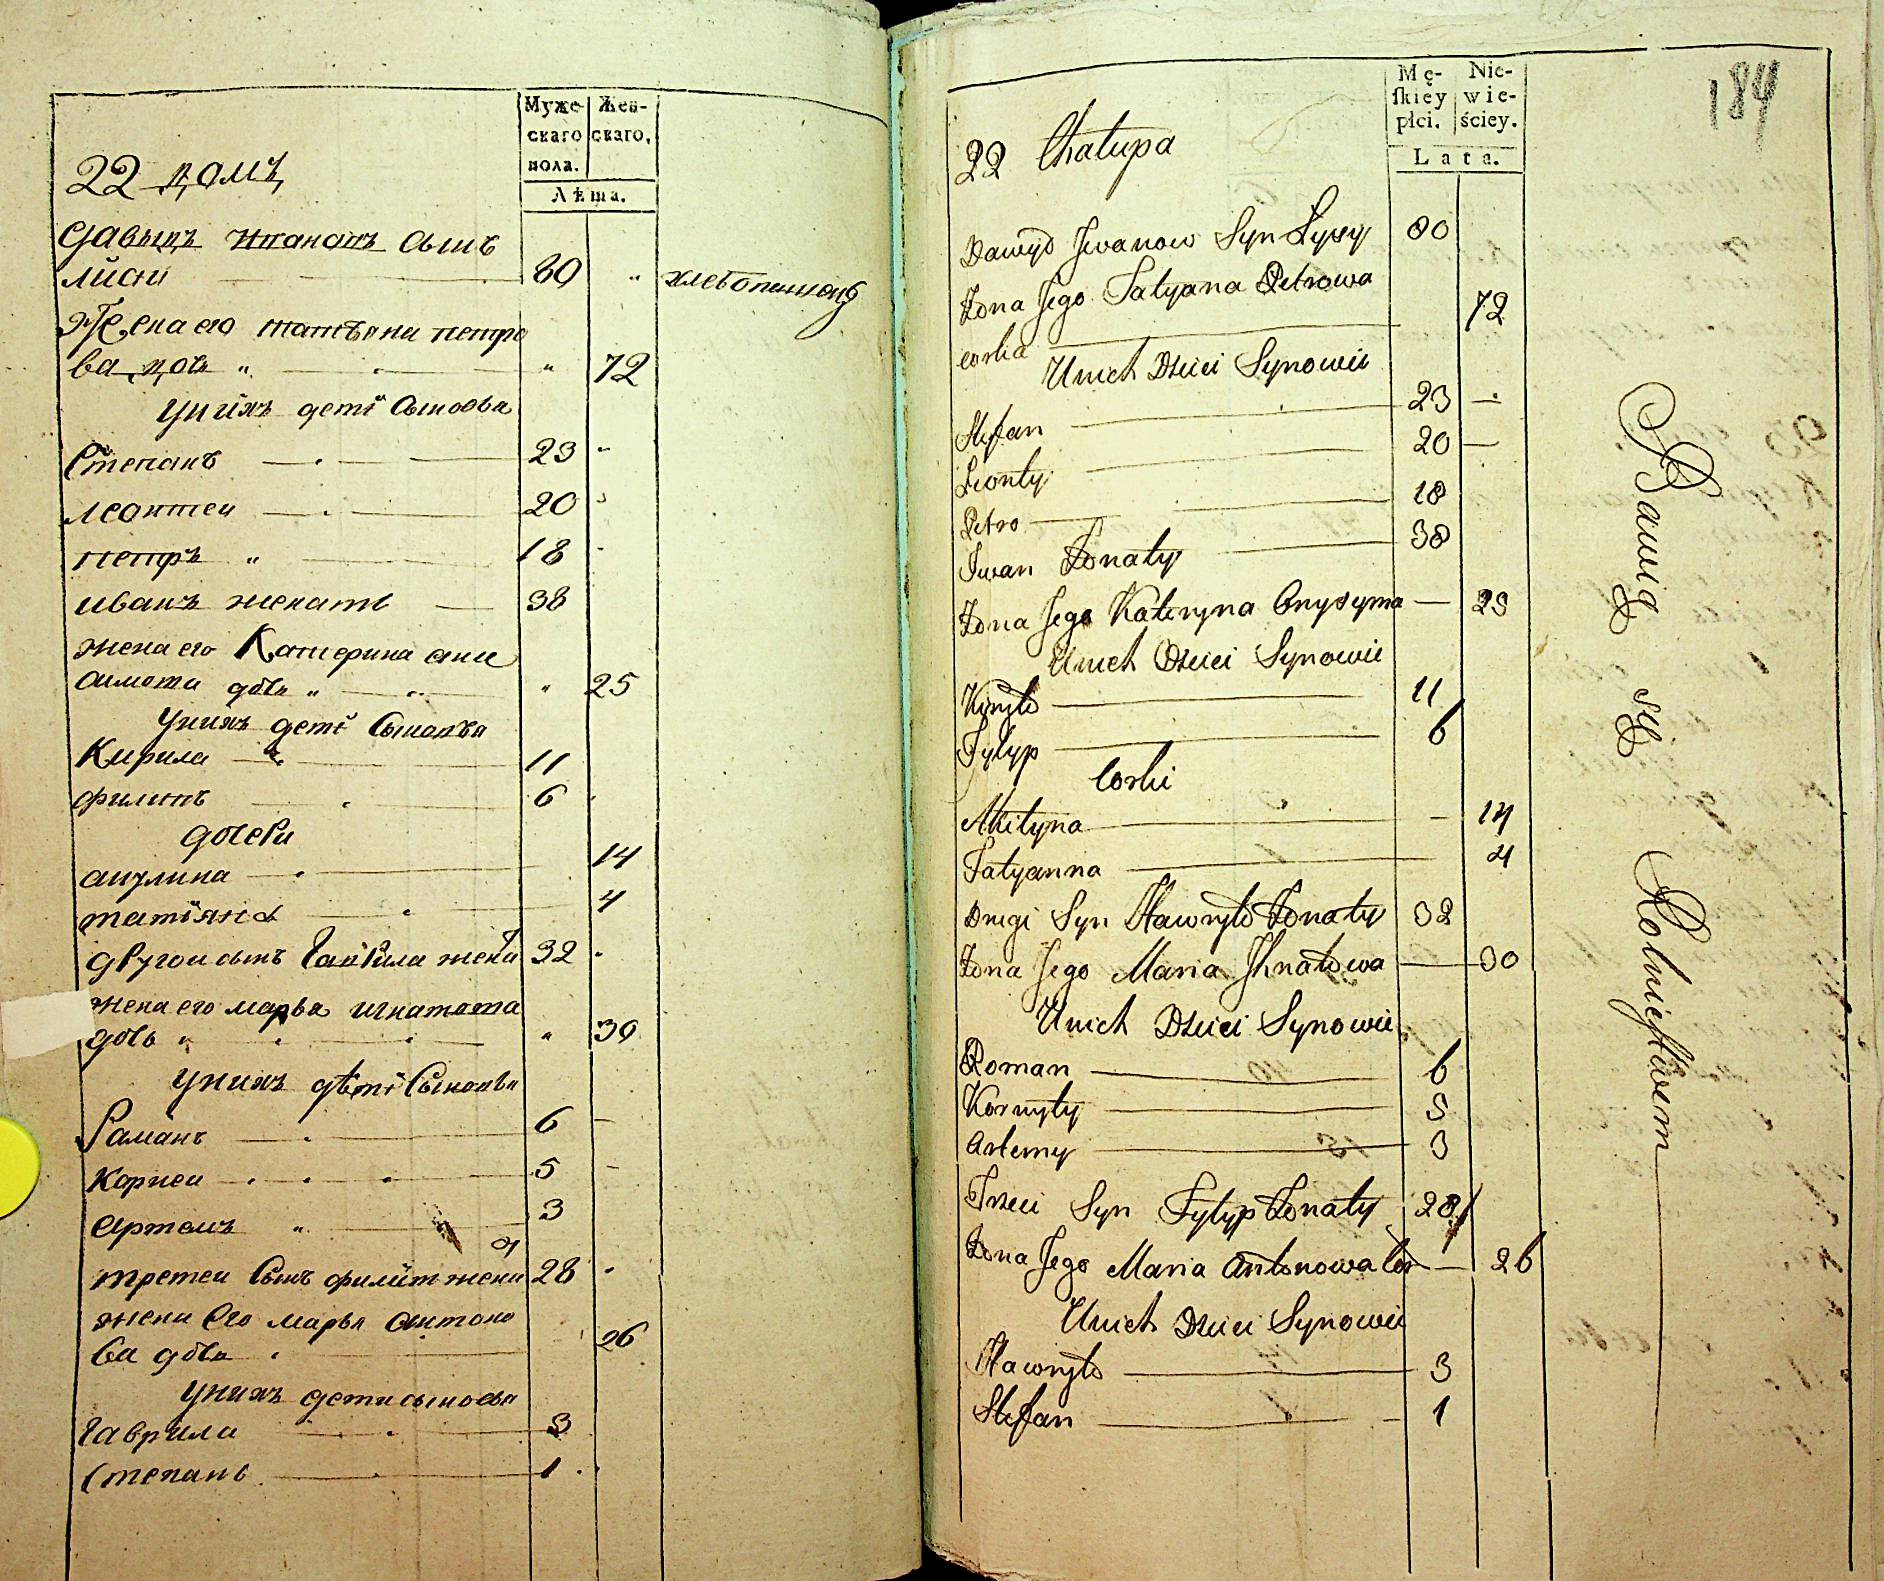 Муже-
скаго
пола.
Жен-
скаго,
Лѣта.
22 домъ
Давыдъ Ивановъ сынъ
лиси 80 " хлебопашенц
Жена его татьяна петро
ва дочь " " 72
Унихъ дети Сыновья
Степанъ 23 "
леонтеи 20
петръ " 18
иванъ женатъ 38
жена его Катерина ани
симова дочь " " 25
Унихъ дети Сыновья
Кирила 11
филипъ 6
дочери
акулина 14
татіяна 4
другои сынъ Гаврила жена 32
т
жена его марья игнатова
дочь " " 30
Унихъ дѣти Сыновья
Раманъ 6
карнеи 5
артемъ " 3
третеи Сынъ филипъ жена 28
т
жена Его марья антоно
ва дочь 26
Унихъ дети сыновья
Гаврила 3
Степанъ 1
184
Mę-
skiey
płci.
Nie-
wie-
ściey.
Lata.
22 Chałupa
Dawyd Jwanow Syn Łysy 80
Żona Jego Tatyana Petrowa
corka 72
Unich Dzieci Synowie
Stefan 23
Leonty 20
Petro 18
Jwan Żonaty 38
Żona Jego Kateryna Onysyma 25
Unich Dzieci Synowie
Kiryło 11
Fylyp 6
Corki
Akilyna 14
Tatyanna 4
Drugi Syn Hawryło Żonaty 32
Żona Jego Maria Jhnatowa 30
Unich Dzieci Synowie
Roman 6
Kornyły 5
Artemy 3
Trzeci Syn Fylyp Żonaty 28
Żona Jego Maria Antonowa Cor 26
Unich Dzieci Synowie
Hawryło 3
Stefan 1
Bawią się Rolnictwem